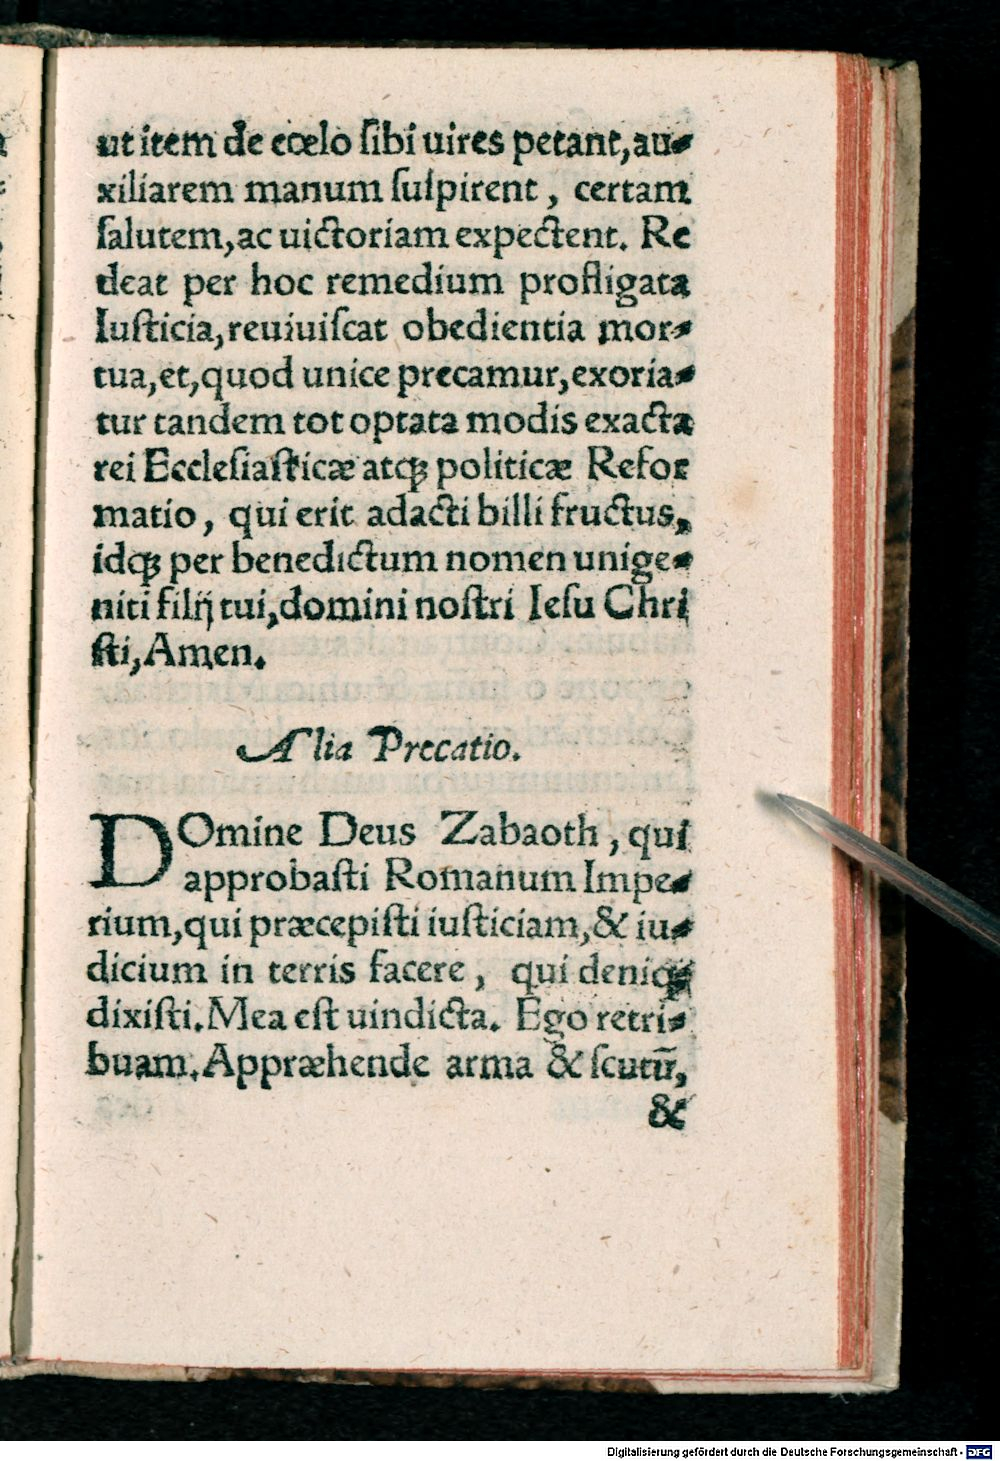 ut item de cœlo ſibi uires petant, au-
xiliarem manum ſuſpirent, certam
ſalutem, ac uictoriam expectent. Re
deat per hoc remedium profligata
Iuſticia, reuiuiſcat obedientia mor-
tua, et, quod unice precamur, exoria-
tur tandem tot optata modis exacta
rei Eccleſiaſticæ atqꝫ politicæ Refor
matio, qui erit adacti billi fructus,
idqꝫ per benedictum nomen unige-
niti filij tui, domini noſtri Ieſu Chri
ſti, Amen.
Alia Precatio.
DOmine Deus Zabaoth, qui
approbaſti Romanum Impe-
rium, qui præcepiſti iuſticiam, & iu-
dicium in terris facere, qui deniqꝫ
dixiſti. Mea eſt uindicta. Ego retri-
buam. Appræhende arma & ſcutū,
&
Digitalisierung gefördert durch die Deutsche Forschungsgemeinschaft - DFG